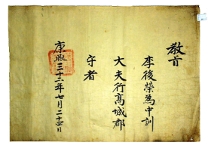 教旨
李後榮爲中訓
大夫行高城郡
守者
康熙三十三年七月二十四日